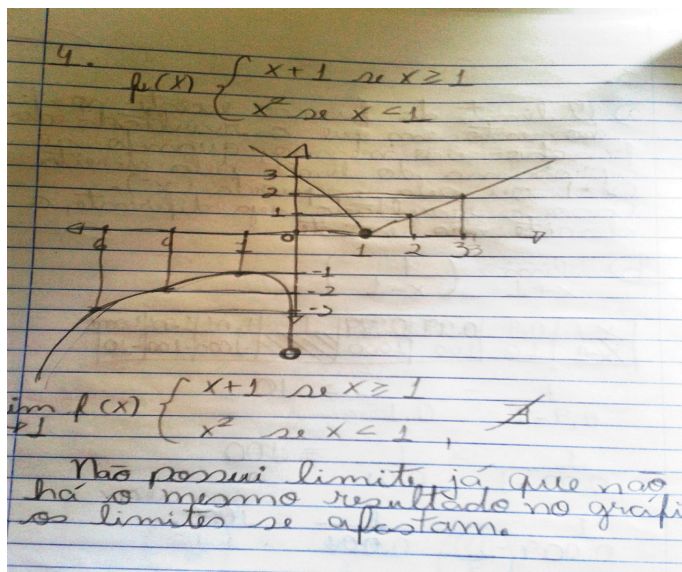 4.
f(x) { x+1 se x ≥ 1
x² se x < 1
3
2
1
0
1 2 3
-1
-2
-3
im f(x) { x+1 se x ≥ 1
→1 x² se x < 1, ∄
Não possui limite, já que não
há o mesmo resultado no gráfi
os limites se afastam.